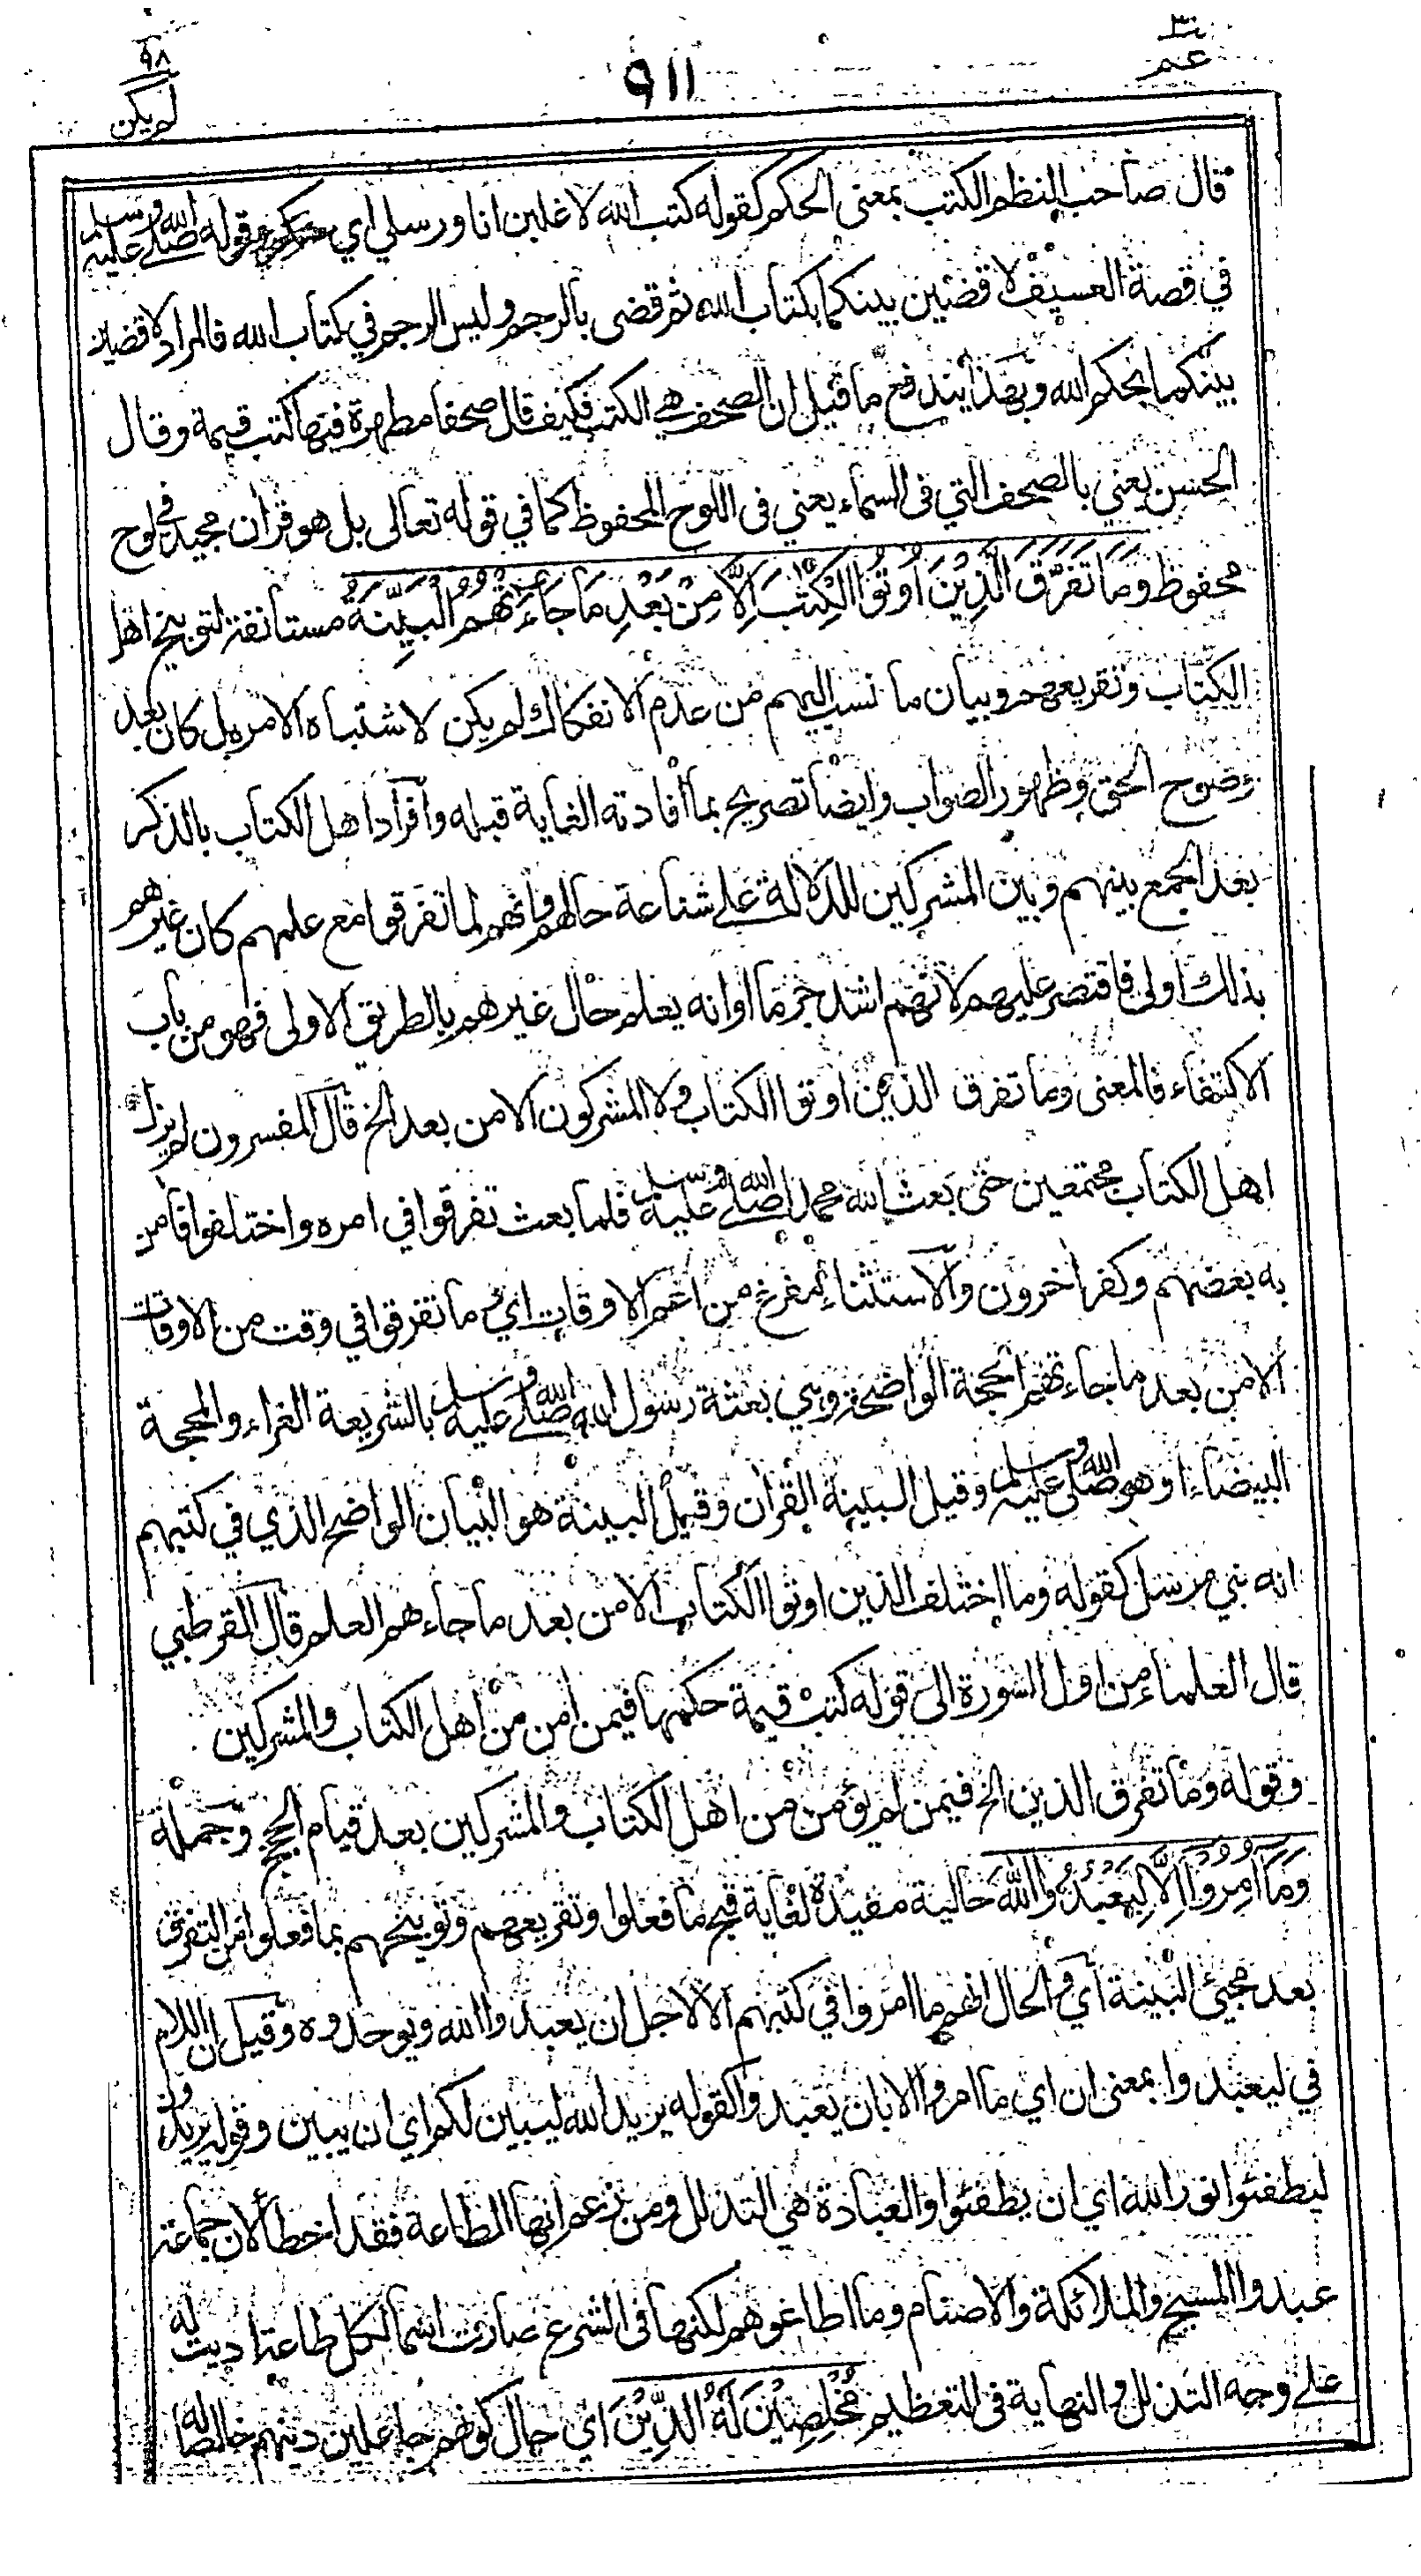 ٣٠
عم
٩١١
٩٨
لم يكن
قال صاحب النظم الكتب بمعنى الحكم كقوله كتب الله لاغلبن انا ورسلي اي حكم وقوله صلى الله عليه وسلم
في قصة العسيف لاقضين بينكما بكتاب الله ثم قضى بالرجم وليس الرجم في كتاب الله فالمراد لاقضين
بينكما بحكم الله وبهذا يندفع ما قيل ان الصحف هي الكتب فكيف قال صحفا مطهرة فيها كتب قيمة وقال
الحسن يعني بالصحف التي في السماء يعني في اللوح المحفوظ كما في قوله تعالى بل هو قران مجيد في لوح
محفوظ وَمَا تَفَرَّقَ الَّذِيْنَ اُوتُوا الْكِتٰبَ اِلَّا مِنْ بَعْدِ مَا جَآءَتْهُمُ الْبَيِّنَةُ مستأنفة لتوبيخ اهل
الكتاب وتقريعهم وبيان ما نسب اليهم من عدم الانفكاك لم يكن لاشتباه الامر بل كان بعد
وضوح الحق وظهور الصواب وايضا تصريح بما أفادته الغاية قبله وافراد اهل الكتاب بالذكر
بعد الجمع بينهم وبين المشركين للدلالة على شناعة حالهم وانهم لما تفرقوا مع علمهم كان غيرهم
بذلك اولى فاقتصر عليهم لانهم اشد جرما او انه يعلم حال غيرهم بالطريق الاولى فهو من باب
الاكتفاء فالمعنى وما تفرق الذين اوتوا الكتاب ولا المشركون الا من بعد الخ قال المفسرون لم يزل
اهل الكتاب مجتمعين حتى بعث الله محمدا صلى الله عليه وسلم فلما بعث تفرقوا في امره واختلفوا فامن
به بعضهم وكفر اخرون والاستثناء مفرغ من اعم الاوقات اي ما تفرقوا في وقت من الاوقات
الا من بعد ما جاءتهم الحجة الواضحة وهي بعثة رسول الله صلى الله عليه وسلم بالشريعة الغراء والمحجة
البيضاء او هو صلى الله عليه وسلم وقيل البينة القران وقيل البينة هو البيان الواضح الذي في كتبهم
انه نبي مرسل كقوله وما اختلف الذين اوتوا الكتاب الا من بعد ما جاءهم العلم قال القرطبي
قال العلماء من اول السورة الى قوله كتب قيمة حكمها فيمن امن من اهل الكتاب والمشركين
وقوله وما تفرق الذين الخ فيمن لم يؤمن من اهل الكتاب والمشركين بعد قيام الحجج وجملة
وَمَآ اُمِرُوْٓا اِلَّا لِيَعْبُدُوا اللّٰهَ حالية مفيدة لغاية قبح ما فعلوا وتقريعهم وتوبيخهم بما فعلوا من التفرق
بعد مجيئ البينة اي والحال انهم ما امروا في كتبهم الا لاجل ان يعبدوا الله ويوحدوه وقيل ان اللام
في ليعبدوا بمعنى ان اي ما امروا الا بان يعبدوا كقوله يريد الله ليبين لكم اي ان يبين وقوله يريدون
ليطفئوا نور الله اي ان يطفئوا والعبادة هي التذلل ومن زعم انها الطاعة فقد اخطأ لان جماعة
عبدوا المسيح والملائكة والاصنام وما اطاعوهم لكنها في الشرع صارت اسما لكل طاعة اديت له
على وجه التذلل والنهاية في التعظيم مُخْلِصِيْنَ لَهُ الدِّيْنَ اي حال كونهم جاعلين دينهم خالصا له